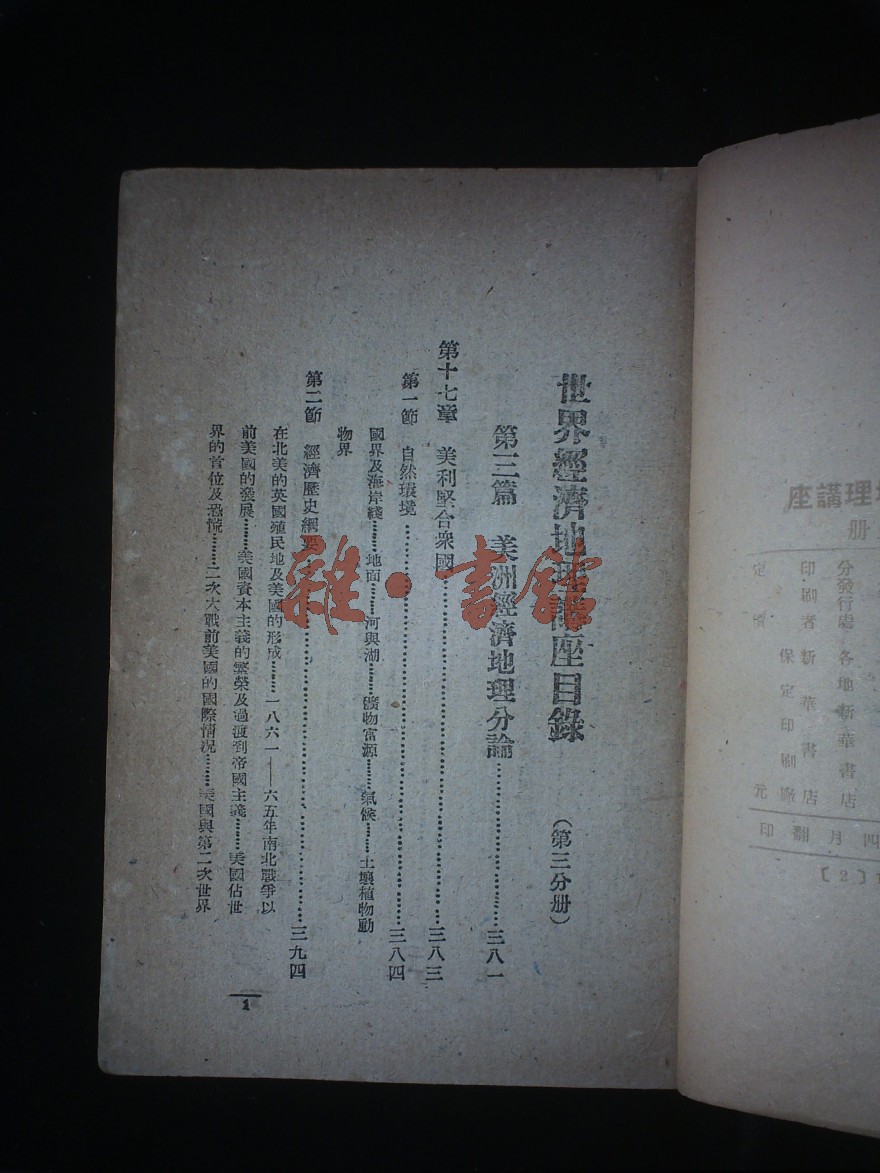 理講座
册
分發行處 各地新華書店
印刷者 新華書店
保定印刷廠
定價 元
四月翻印
〔2〕
世界經濟地理講座目錄 （第三分册）
第三篇 美洲經濟地理分論……三八一
第十七章 美利堅合衆國……三八三
第一節 自然環境……三八四
國界及海岸綫……地面……河與湖……礦物富源……氣候……土壤植物動
物界
第二節 經濟歷史綱要……三九四
在北美的英國殖民地及美國的形成……一八六一——六五年南北戰爭以
前美國的發展……美國資本主義的繁榮及過渡到帝國主義……美國佔世
界的首位及恐慌……二次大戰前美國的國際情況……美國與第二次世界
1
雜·書館